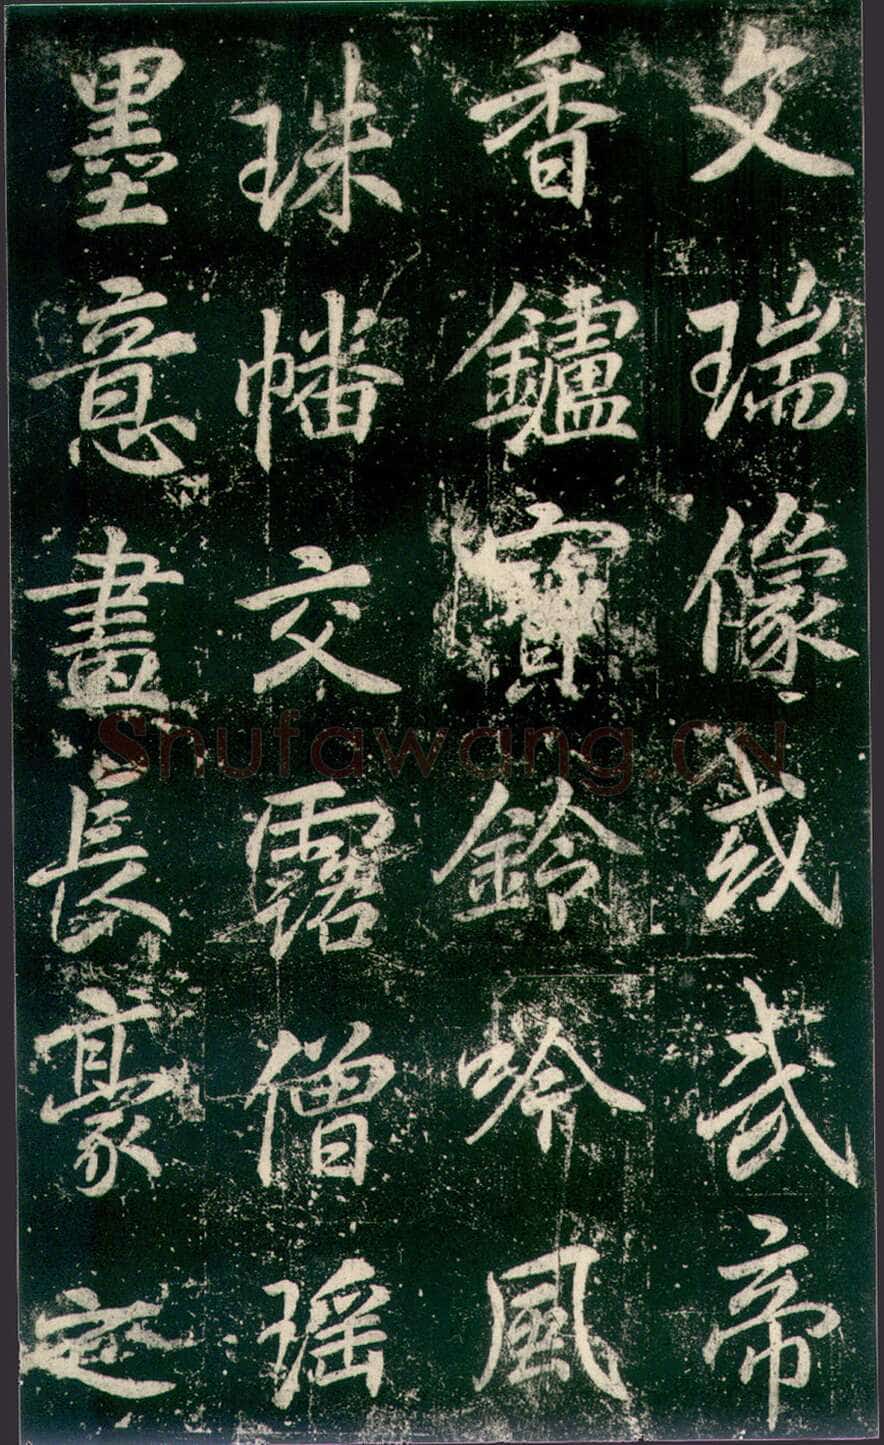 文瑞像或武帝
香鑪寶鈴吟風
珠幡交露僧瑶
墨意畫長豪定
Shufawang.CN